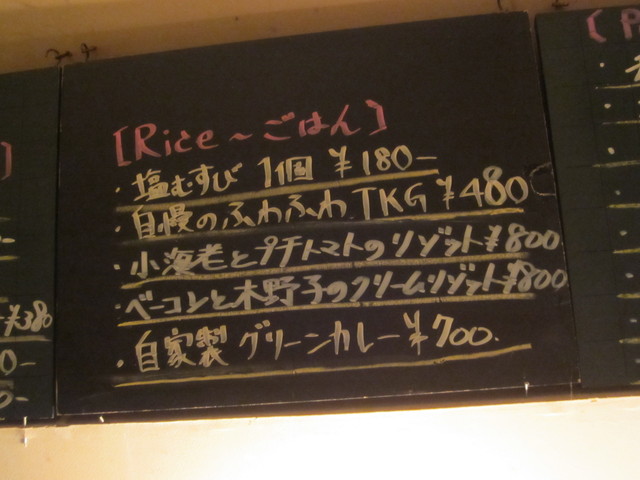 [Rice~ごはん]
・塩むすび 1個 ¥180-
・自慢のふわふわ TKG ¥480
・小海老とプチトマトのリゾット¥800
・ベーコンと木野子のクリームリゾット¥800
・自家製 グリーンカレー¥700.
¥380